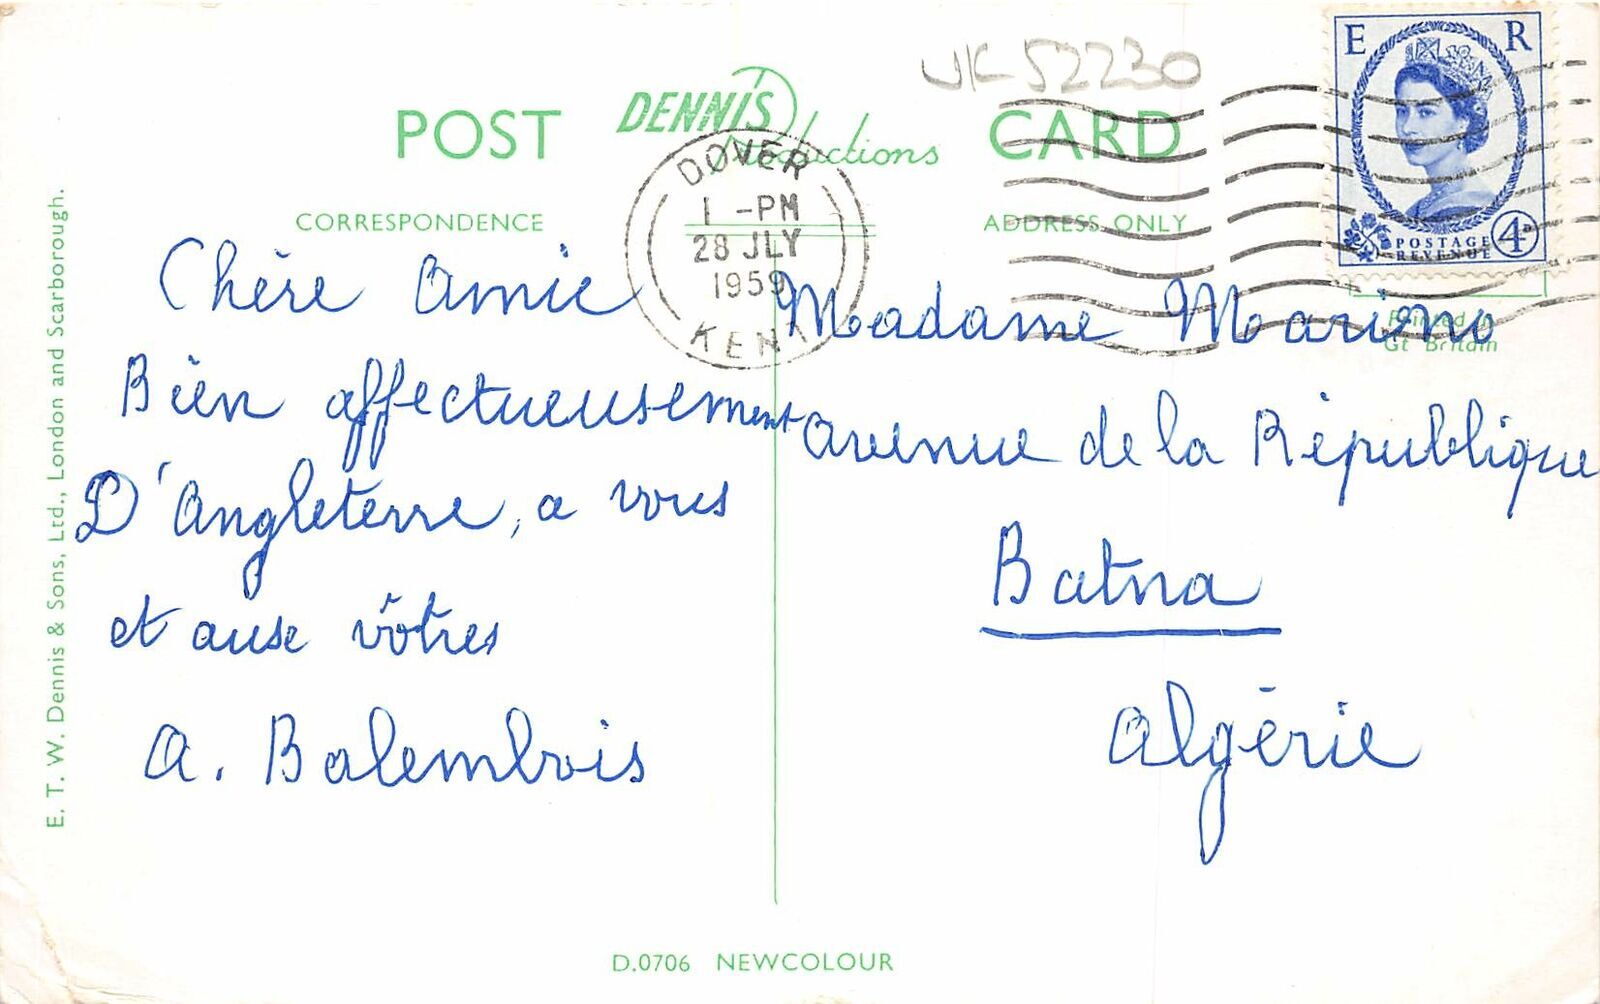 UK 52230
POST DENNIS Productions CARD
CORRESPONDENCE
ADDRESS ONLY
DOVER
1 - PM
28 JLY
1959
KENT
E R
POSTAGE
REVENUE
4D
Printed in
Gt Britain
Chère Amie
Bien affectueusement
D'Angleterre, a vous
et ause vôtres
A. Balembois
Madame Marieno
Avenue de la République
Batna
Algérie
E. T. W. Dennis & Sons, Ltd., London and Scarborough.
D.0706 NEWCOLOUR